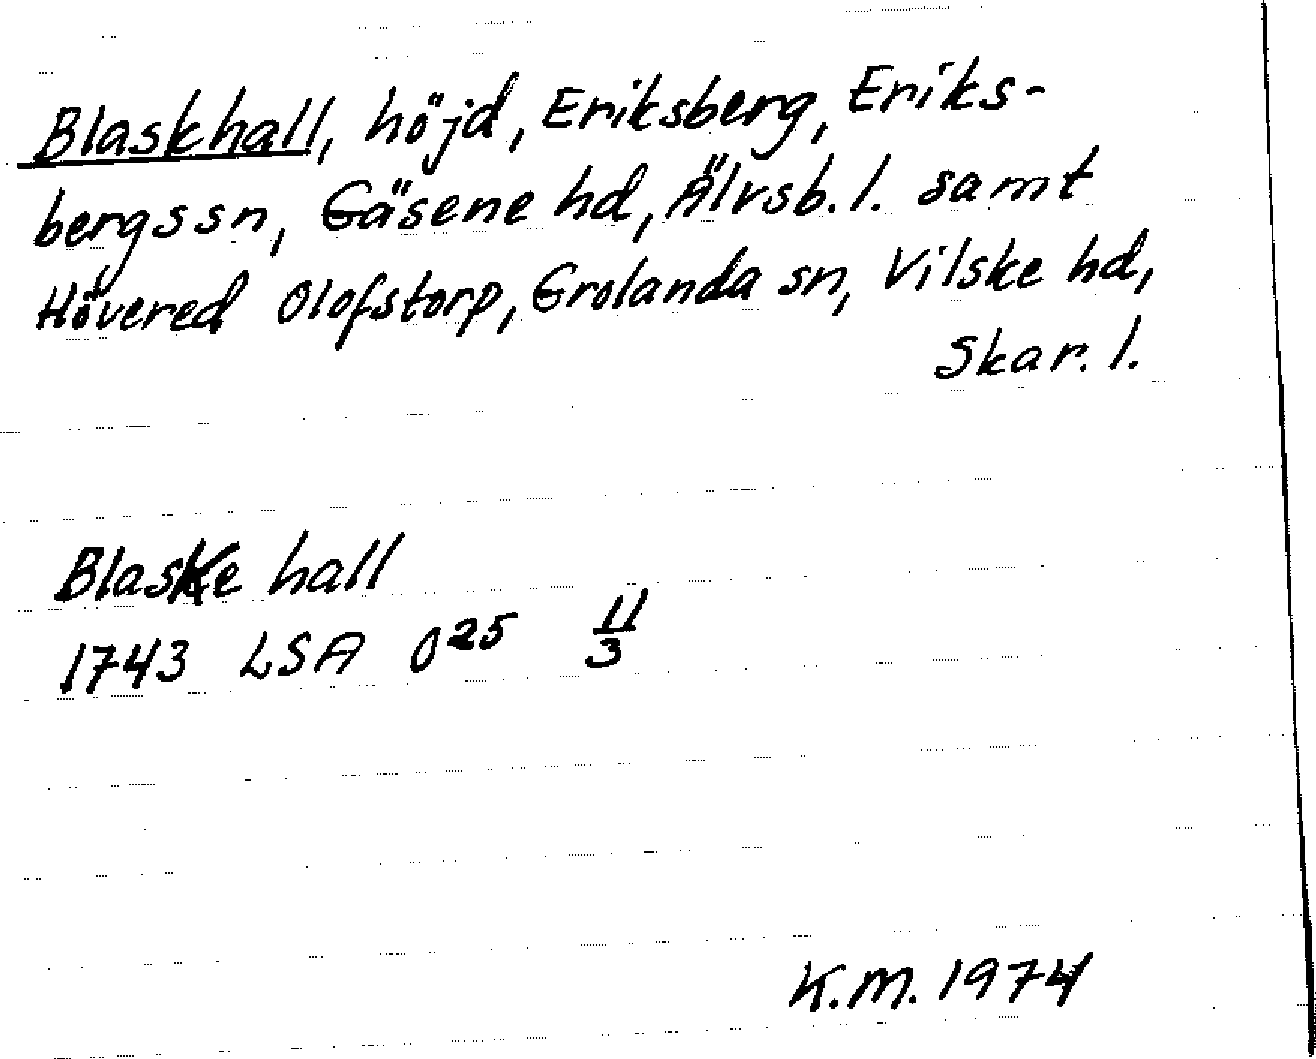 Blaskhall, höjd, Eriksberg, Eriks-
bergs sn, Gäsene hd, Älvsb. l. samt
Hövered Olofstorp, Grolanda sn, Vilske hd,
Skar. l.
Blaske hall
1743 LSA O25 11/3
K.M. 1974